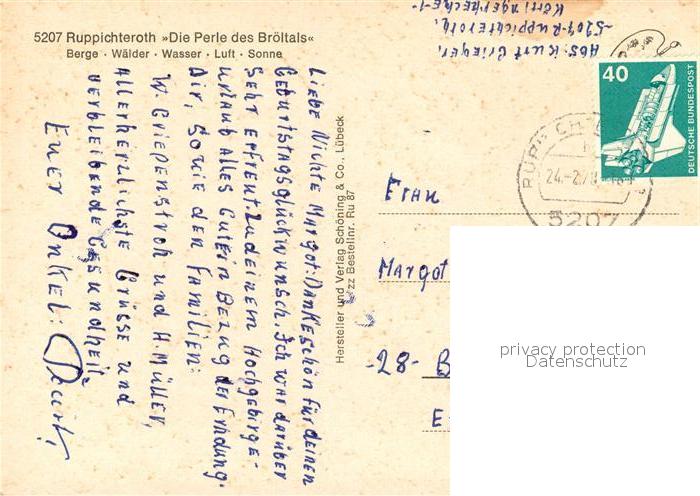 5207 Ruppichteroth »Die Perle des Bröltals«
Berge · Wälder · Wasser · Luft · Sonne
Abs: Kurt Grieger,
-5207-Ruppichteroth,
40
DEUTSCHE BUNDESPOST
24.-2.78
5207
Liebe Nichte Margot: Dankeschön für deinen
Geburtstagsglückwunsch. Ich war darüber
Sehr erfreut. Zu deinem Hochgebirge-
urlaub alles Gute in Bezug der
Dir, sowie den Familien:
W. Griepenstroh und H. Müller,
Allerherzlichste Grüsse und
verbleibende Gesundheit
Euer Onkel: Kurt!
Hersteller und Verlag Schöning & Co., Lübeck
zz Bestellnr. Ru 87
Frau
Margot
-28- B
E
privacy protection
Datenschutz